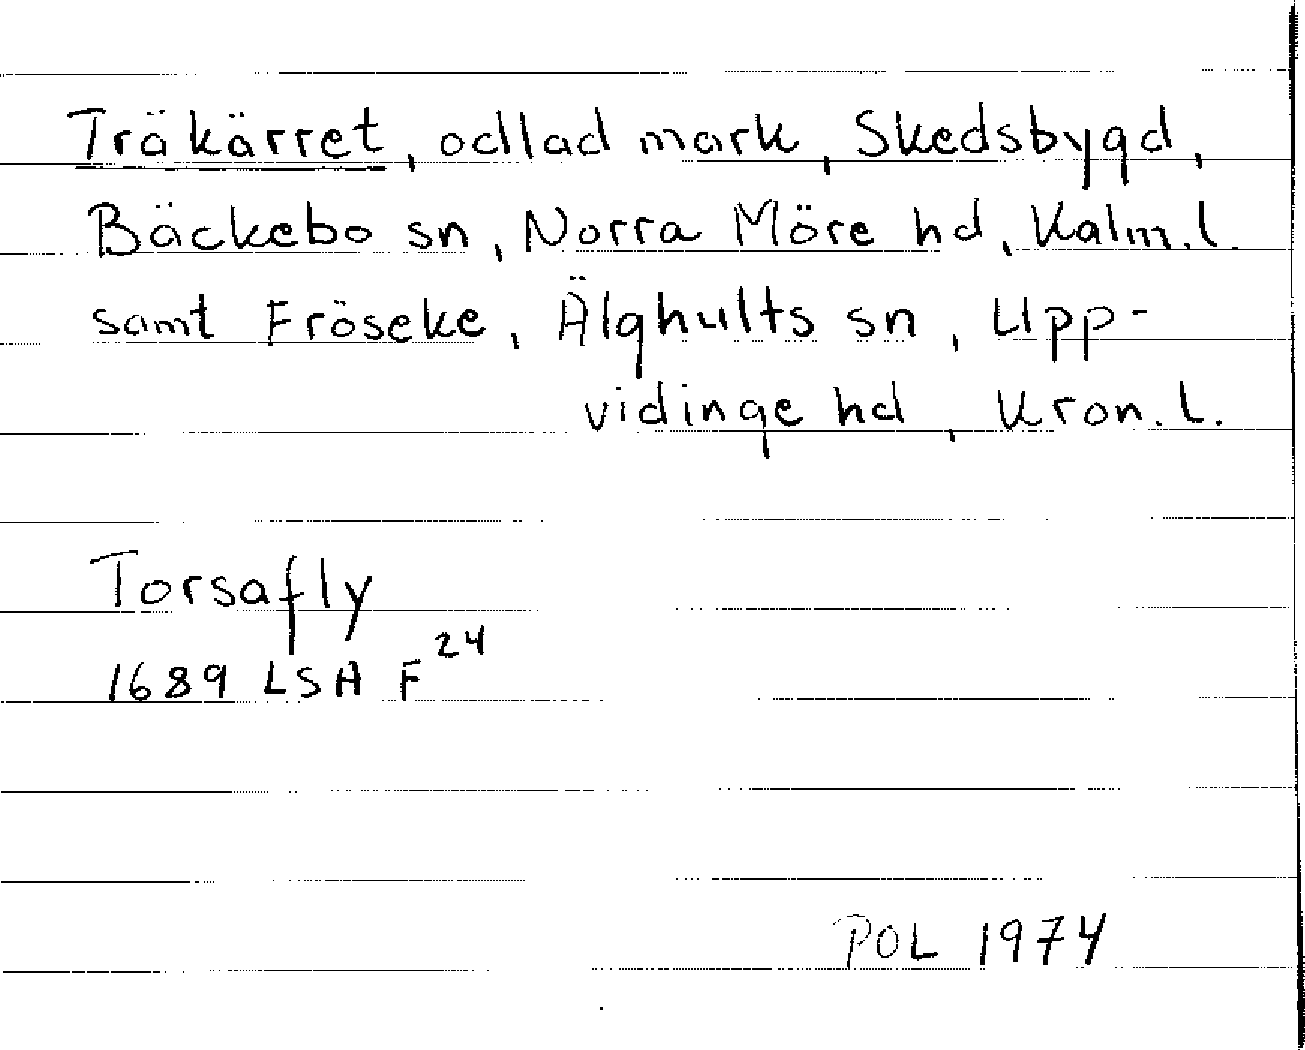 Träkärret, odlad mark, Skedsbygd,
Bäckebo sn, Norra Möre hd, Kalm.l.
samt Fröseke, Älghults sn, Upp-
vidinge hd, Kron.l.
Torsafly
1689 LSA F24
POL 1974